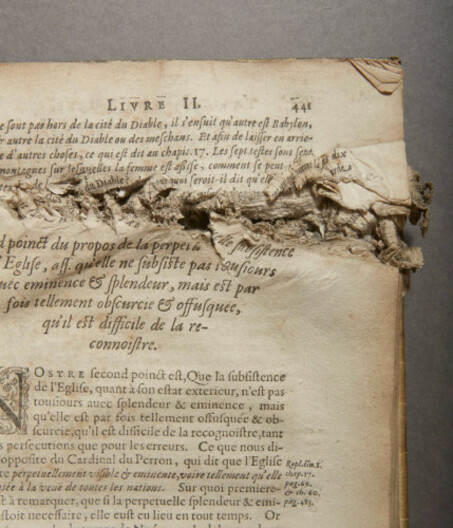 LIVRE II. 441
e sont pas hors de la cité du Diable, il s'ensuit qu'autre est Babylon,
autre la cité du Diable ou des meschans. Et afin de laisser en arrie-
e d'autres choses, ce qui est dit au chapit. 17. Les sept testes sont sept
montagnes sur lesquelles la femme est assise, comment se peut
du Diable? quoi seroit-il dit qu'elle
d poinct du propos de la perpetu de subsistence
l'Eglise, ass. qu'elle ne subsiste pas tousiours
uec eminence & splendeur, mais est par
fois tellement obscurcie & offusquée,
qu'il est difficile de la re-
connoistre.
NOSTRE second poinct est, Que la subsistence
de l'Eglise, quant à son estat exterieur, n'est pas
tousiours auec splendeur & eminence, mais
qu'elle est par fois tellement offusquée & ob-
scurcie, qu'il est difficile de la recognoistre, tant
s persecutions que pour les erreurs. Ce que nous di-
opposite du Cardinal du Perron, qui dit que l'Eglise
e perpetuellement visible & eminente, voire tellement qu'elle
osée à la veue de toutes les nations. Sur quoi premiere-
t à remarquer, que si la perpetuelle splendeur & emi-
stoit necessaire, elle eust eu lieu en tout temps. Or
Repl. liu. 1.
chap. 17.
pag. 69.
& ch. 60.
pag. 485.